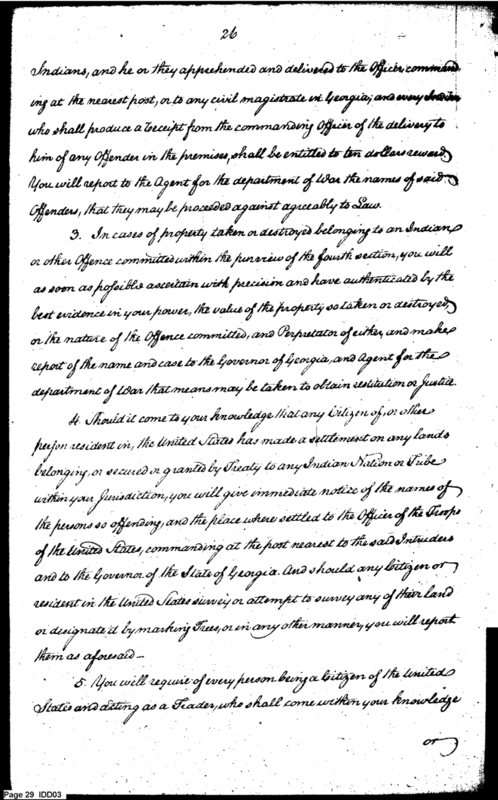 26
Indians, and he or they apprehended and delivered to the Officer command
ing at the nearest post, or to any civil magistrate in Georgia; and every Indian
who shall produce a receipt from the commanding Officer of the delivery to
him of any Offender in the premises, shall be entitled to ten dollars reward.
You will report to the Agent for the department of War the names of said
Offenders, that they may be proceeded against agreeably to Law.
3. In cases of property taken or destroyed belonging to an Indian
or other Offence committed within the purview of the fourth section, you will
as soon as possible ascertain with precision and have authenticated by the
best evidence in your power, the value of the property so taken or destroyed,
or the nature of the Offence committed, and Perpretator of either, and make
report of the name and case to the Governor of Georgia, and Agent for the
department of War that means may be taken to obtain restitution or Justice.
4. Should it come to your knowledge that any Citizen of, or other
person resident in, the United States has made a settlement on any lands
belonging, or secured or granted by Treaty to any Indian Nation or Tribe
within your Jurisdiction, you will give immediate notice of the names of
the persons so offending, and the place where settled to the Officer of the Troops
of the United States, commanding at the post nearest to the said Intruders
and to the Governor of the State of Georgia. And should any Citizen or
resident in the United States survey or attempt to survey any of their land
or designate it by marking Trees, or in any other manner, you will report
them as aforesaid—
5. You will require of every person being a Citizen of the United
States and acting as a Trader, who shall come within your knowledge
or
Page 29 IDD03